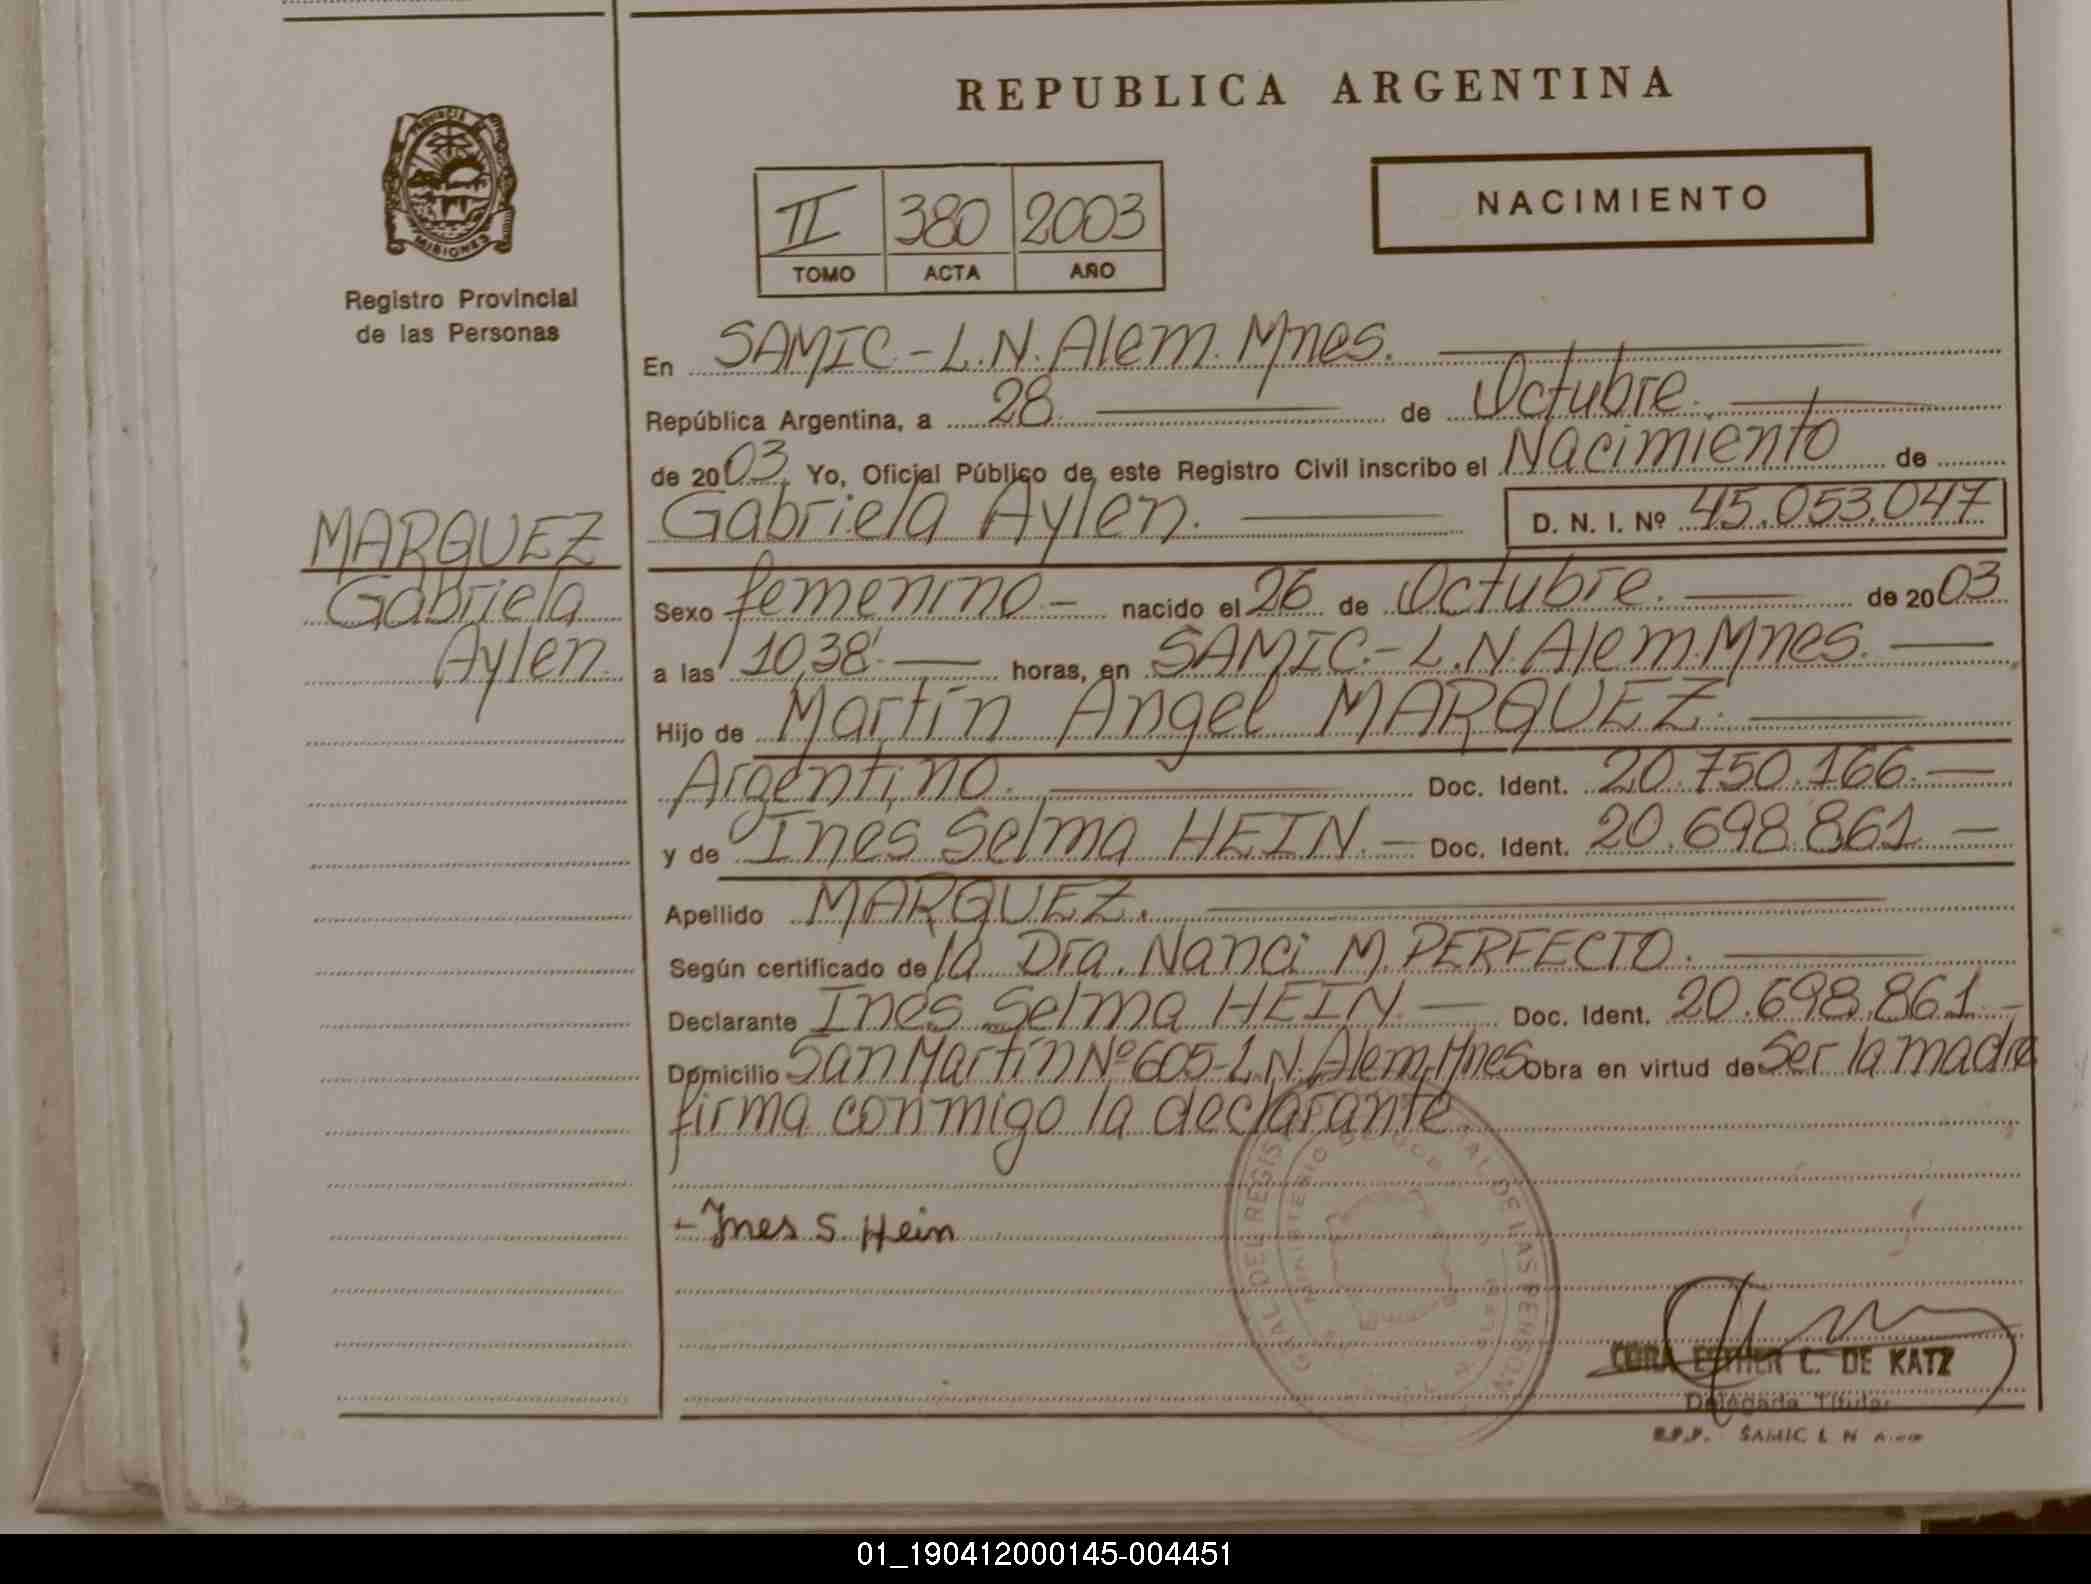 REPUBLICA ARGENTINA
PROVINCIA DE
MISIONES
Registro Provincial
de las Personas
II 380 2003
TOMO ACTA AÑO
NACIMIENTO
En SAMIC-L.N.Alem.Mnes.
República Argentina, a 28 de Octubre.
de 2003. Yo, Oficial Público de este Registro Civil inscribo el Nacimiento de
Gabriela Aylen. D. N. I. Nº 45.053.047
MARQUEZ
Gabriela
Aylen.
Sexo femenino.- nacido el 26 de Octubre. de 2003
a las 10,38' horas, en SAMIC.-L.N.Alem.Mnes.
Hijo de Martín Angel MARQUEZ.
Argentino. Doc. Ident. 20.750.166.-
y de Ines Selma HEIN.- Doc. Ident. 20.698.861-
Apellido MARQUEZ.
Según certificado de la Dra. Nanci M. PERFECTO.
Declarante Ines Selma HEIN.- Doc. Ident. 20.698.861-
Domicilio San Martín Nº 605-L.N.Alem,Mnes Obra en virtud de Ser la madre
firma conmigo la declarante.
-Ines S. Hein
CORA ESTHER C. DE KATZ
Delegada Titular
R.P.P. SAMIC L N Alem
01_190412000145-004451